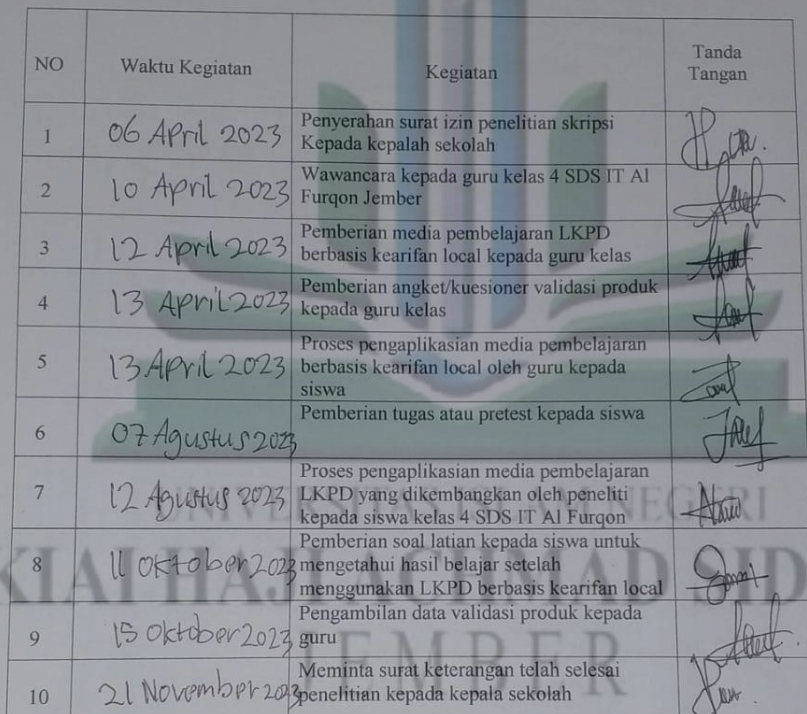 NO Waktu Kegiatan Kegiatan Tanda
Tangan
1 06 April 2023 Penyerahan surat izin penelitian skripsi
Kepada kepalah sekolah
2 10 April 2023 Wawancara kepada guru kelas 4 SDS IT Al
Furqon Jember
3 12 April 2023 Pemberian media pembelajaran LKPD
berbasis kearifan local kepada guru kelas
4 13 April 2023 Pemberian angket/kuesioner validasi produk
kepada guru kelas
5 13 April 2023 Proses pengaplikasian media pembelajaran
berbasis kearifan local oleh guru kepada
siswa
6 07 Agustus 2023 Pemberian tugas atau pretest kepada siswa
7 12 Agustus 2023 Proses pengaplikasian media pembelajaran
LKPD yang dikembangkan oleh peneliti
kepada siswa kelas 4 SDS IT Al Furqon
8 11 Oktober 2023 Pemberian soal latian kepada siswa untuk
mengetahui hasil belajar setelah
menggunakan LKPD berbasis kearifan local
9 15 Oktober 2023 Pengambilan data validasi produk kepada
guru
10 21 November 2023 Meminta surat keterangan telah selesai
penelitian kepada kepala sekolah
UNIVERSITAS ISLAM NEGERI
KIAI HAJI ACHMAD SID
JEMBER